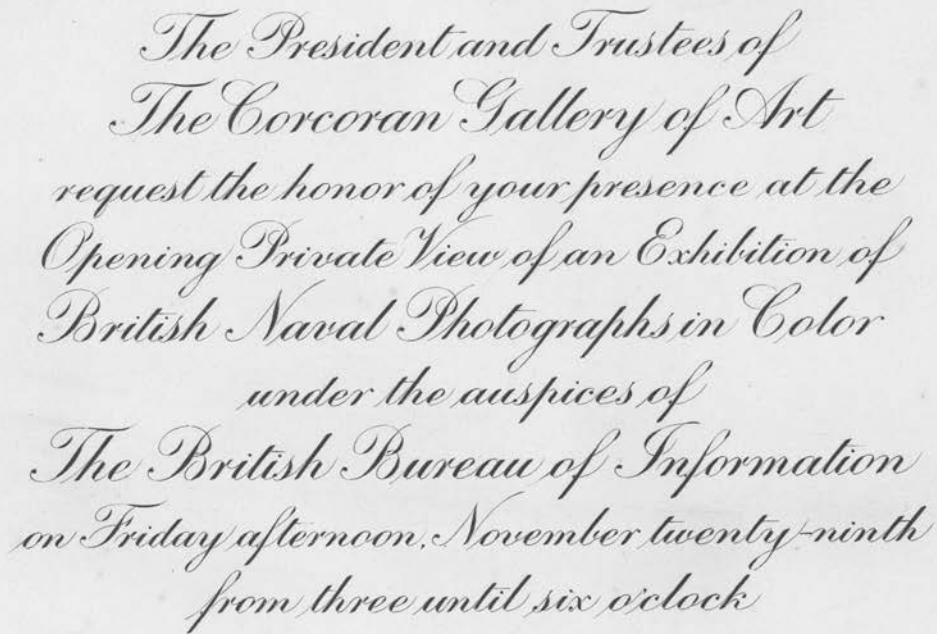 The President and Trustees of
The Corcoran Gallery of Art
request the honor of your presence at the
Opening Private View of an Exhibition of
British Naval Photographs in Color
under the auspices of
The British Bureau of Information
on Friday afternoon, November twenty-ninth
from three until six o'clock